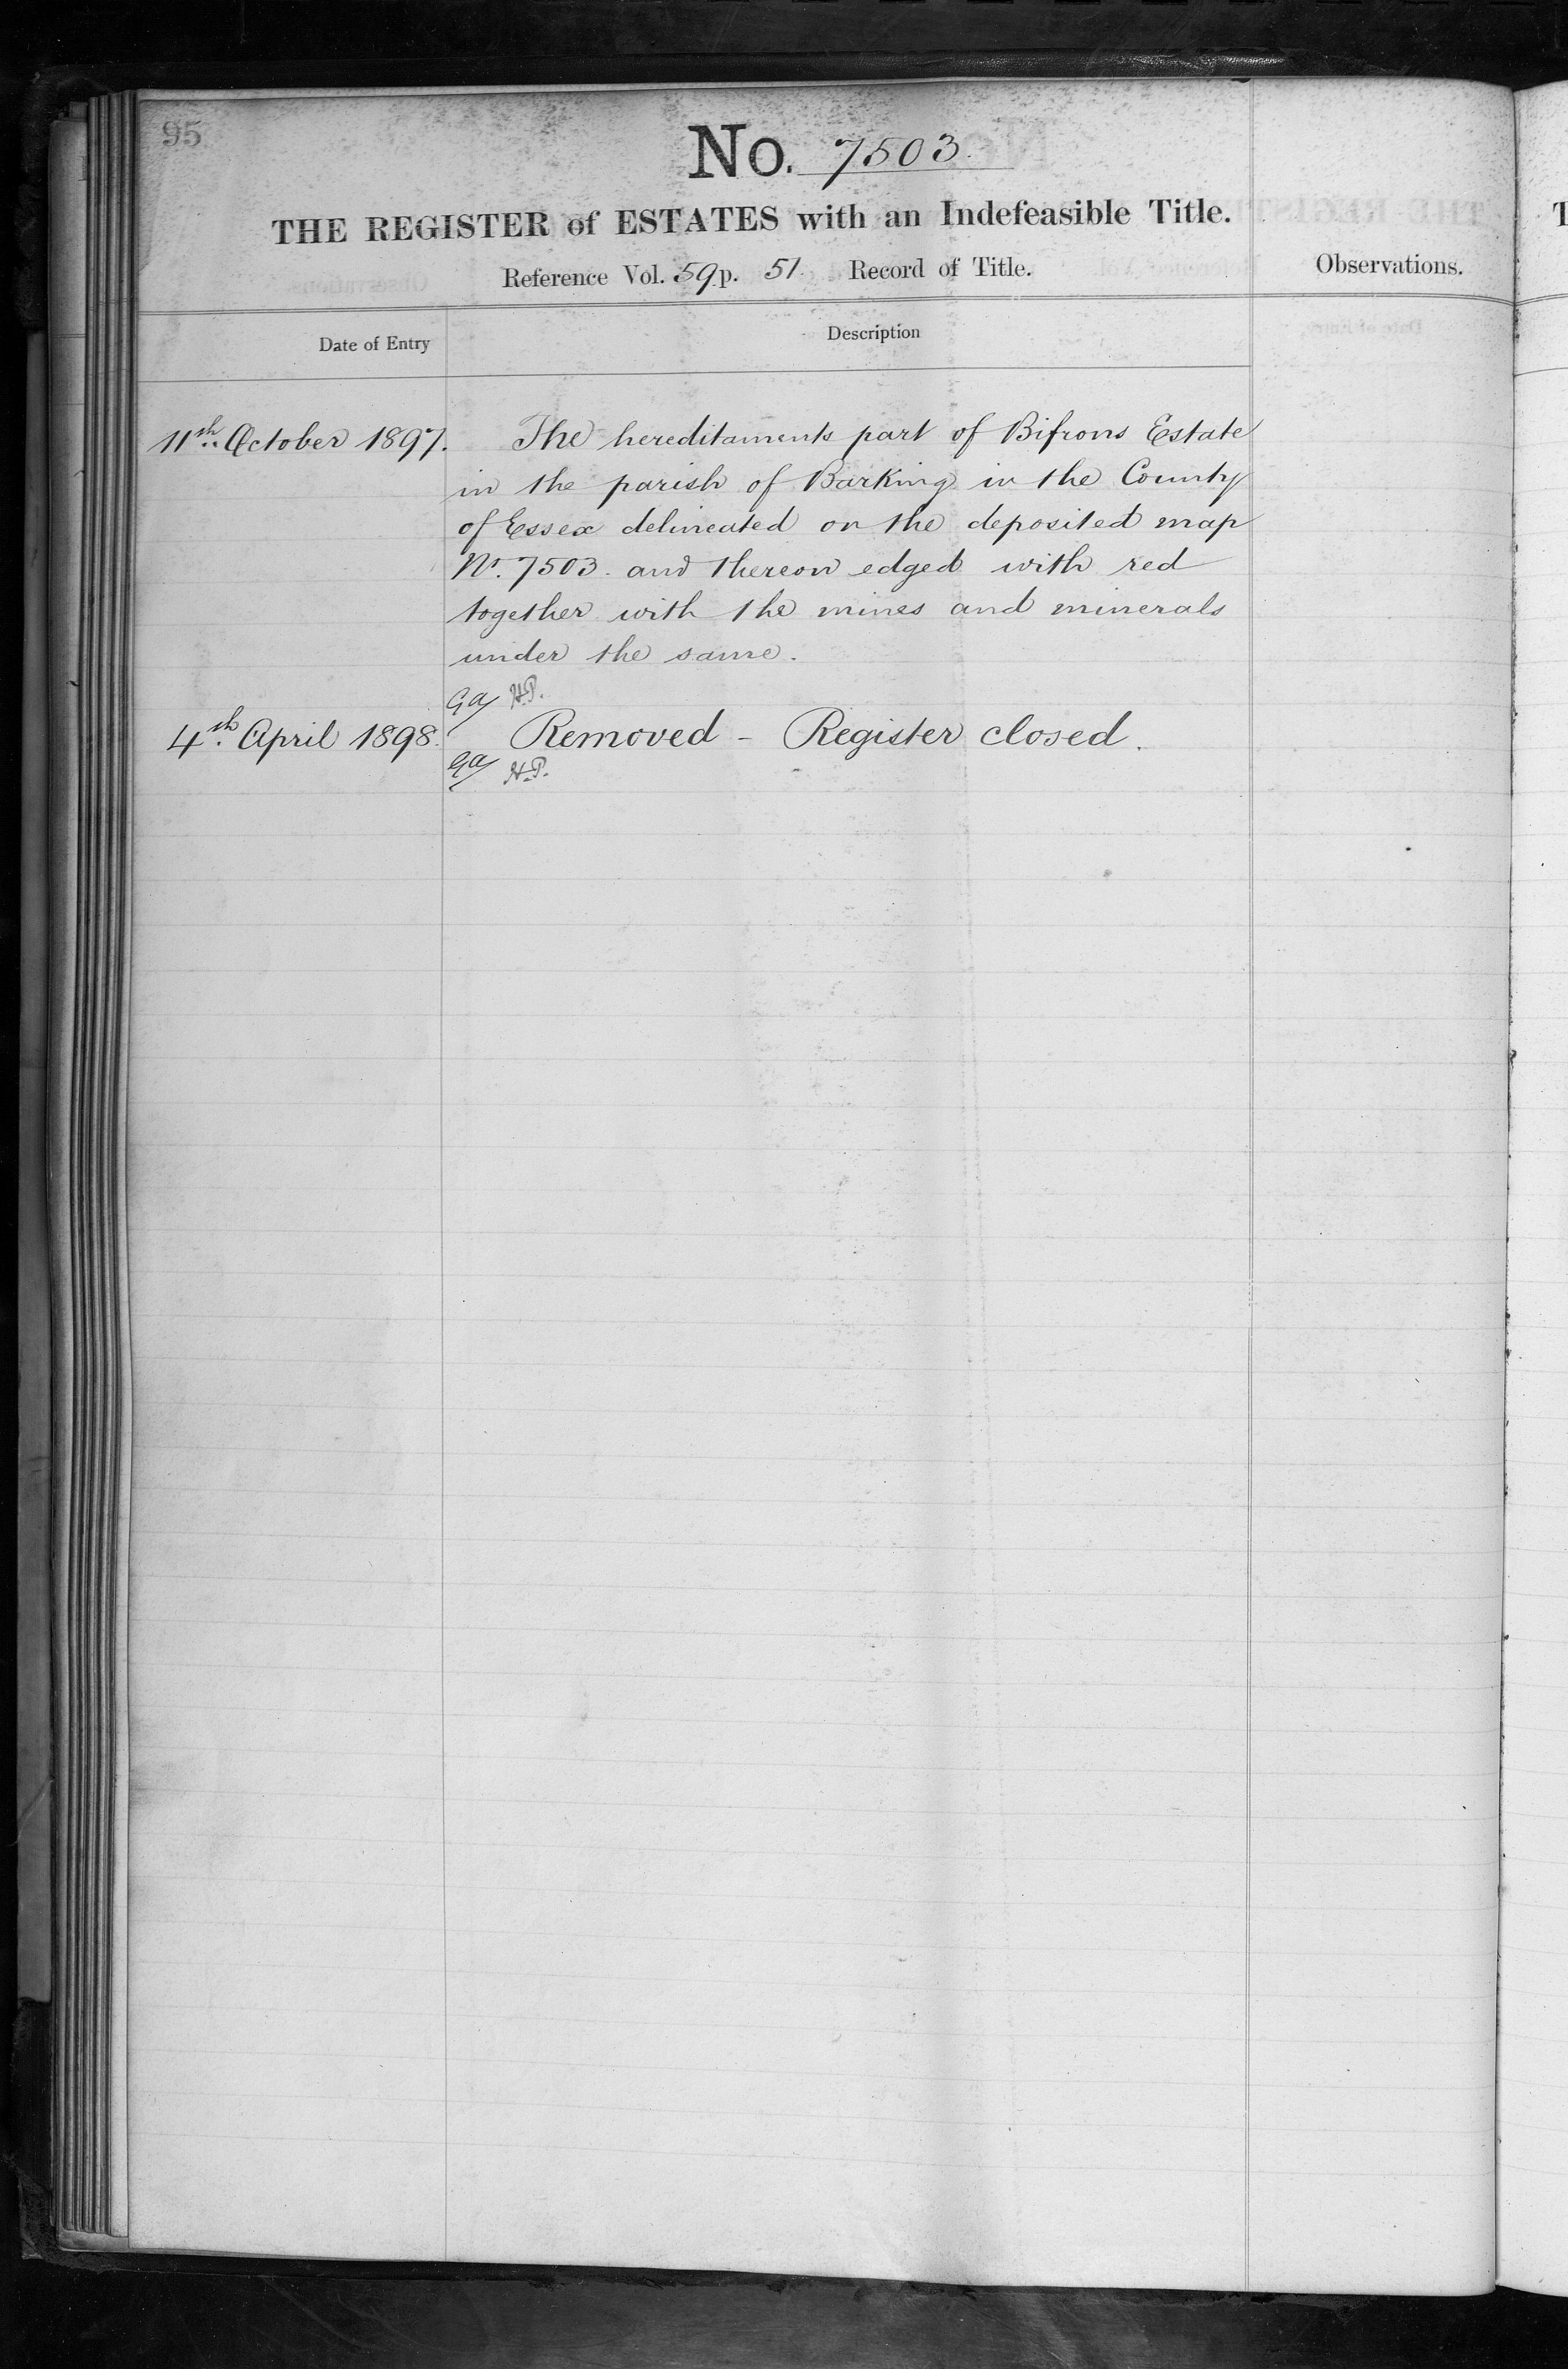 95
No. 7503.
THE REGISTER of ESTATES with an Indefeasible Title.
Reference Vol. 59 p. 51 Record of Title.
Observations.
Date of Entry
Description
11th October 1897.
The hereditaments part of Bifrons Estate
in the parish of Barking in the County
of Essex delineated on the deposited map
No. 7503. and thereon edged with red
together with the mines and minerals
under the same.
H.P.
4th April 1898.
Removed - Register closed.
H.P.